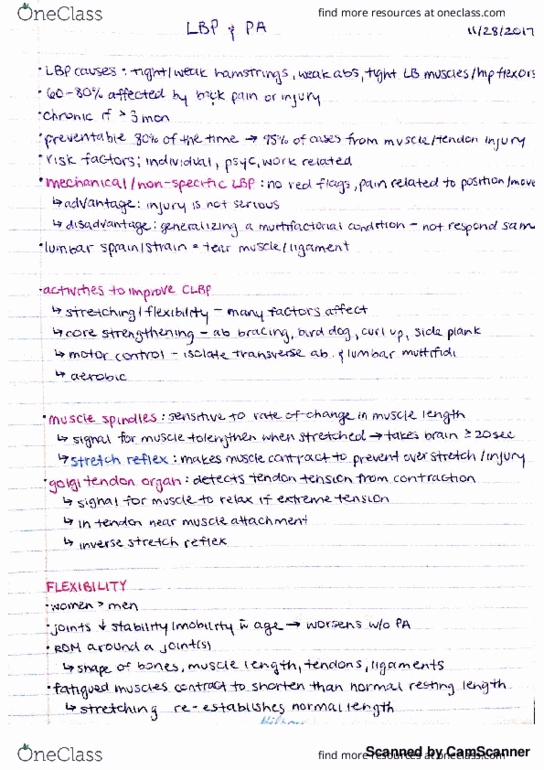 OneClass
find more resources at oneclass.com
LBP & PA
11/28/2017
· LBP causes: tight/weak hamstrings, weak abs, tight LB muscles/hip flexors
· 60-80% affected by back pain or injury
· chronic if > 3 mon
· preventable 80% of the time → 95% of cases from muscle/tendon injury
· risk factors; individual, psyc, work related
· mechanical/non-specific LBP: no red flags, pain related to position/move
↳ advantage: injury is not serious
↳ disadvantage: generalizing a multifactorial condition - not respond sam
· lumbar sprain/strain = tear muscle/ligament
· activities to improve CLBP
↳ stretching/flexibility - many factors affect
↳ core strengthening - ab bracing, bird dog, curl up, side plank
↳ motor control - isolate transverse ab. & lumbar multifidi
↳ aerobic
· muscle spindles: sensitive to rate of change in muscle length
↳ signal for muscle to lengthen when stretched → takes brain ≥ 20 sec
↳ stretch reflex: makes muscle contract to prevent over stretch/injury
· golgi tendon organ: detects tendon tension from contraction
↳ signal for muscle to relax if extreme tension
↳ in tendon near muscle attachment
↳ inverse stretch reflex
FLEXIBILITY
· women > men
· joints ↓ stability/mobility w̄ age → worsens w/o PA
· ROM around a joint(s)
↳ shape of bones, muscle length, tendons, ligaments
· fatigued muscles contract to shorten than normal resting length
↳ stretching re-establishes normal length
OneClass
find more resources at oneclass.com
Scanned by CamScanner